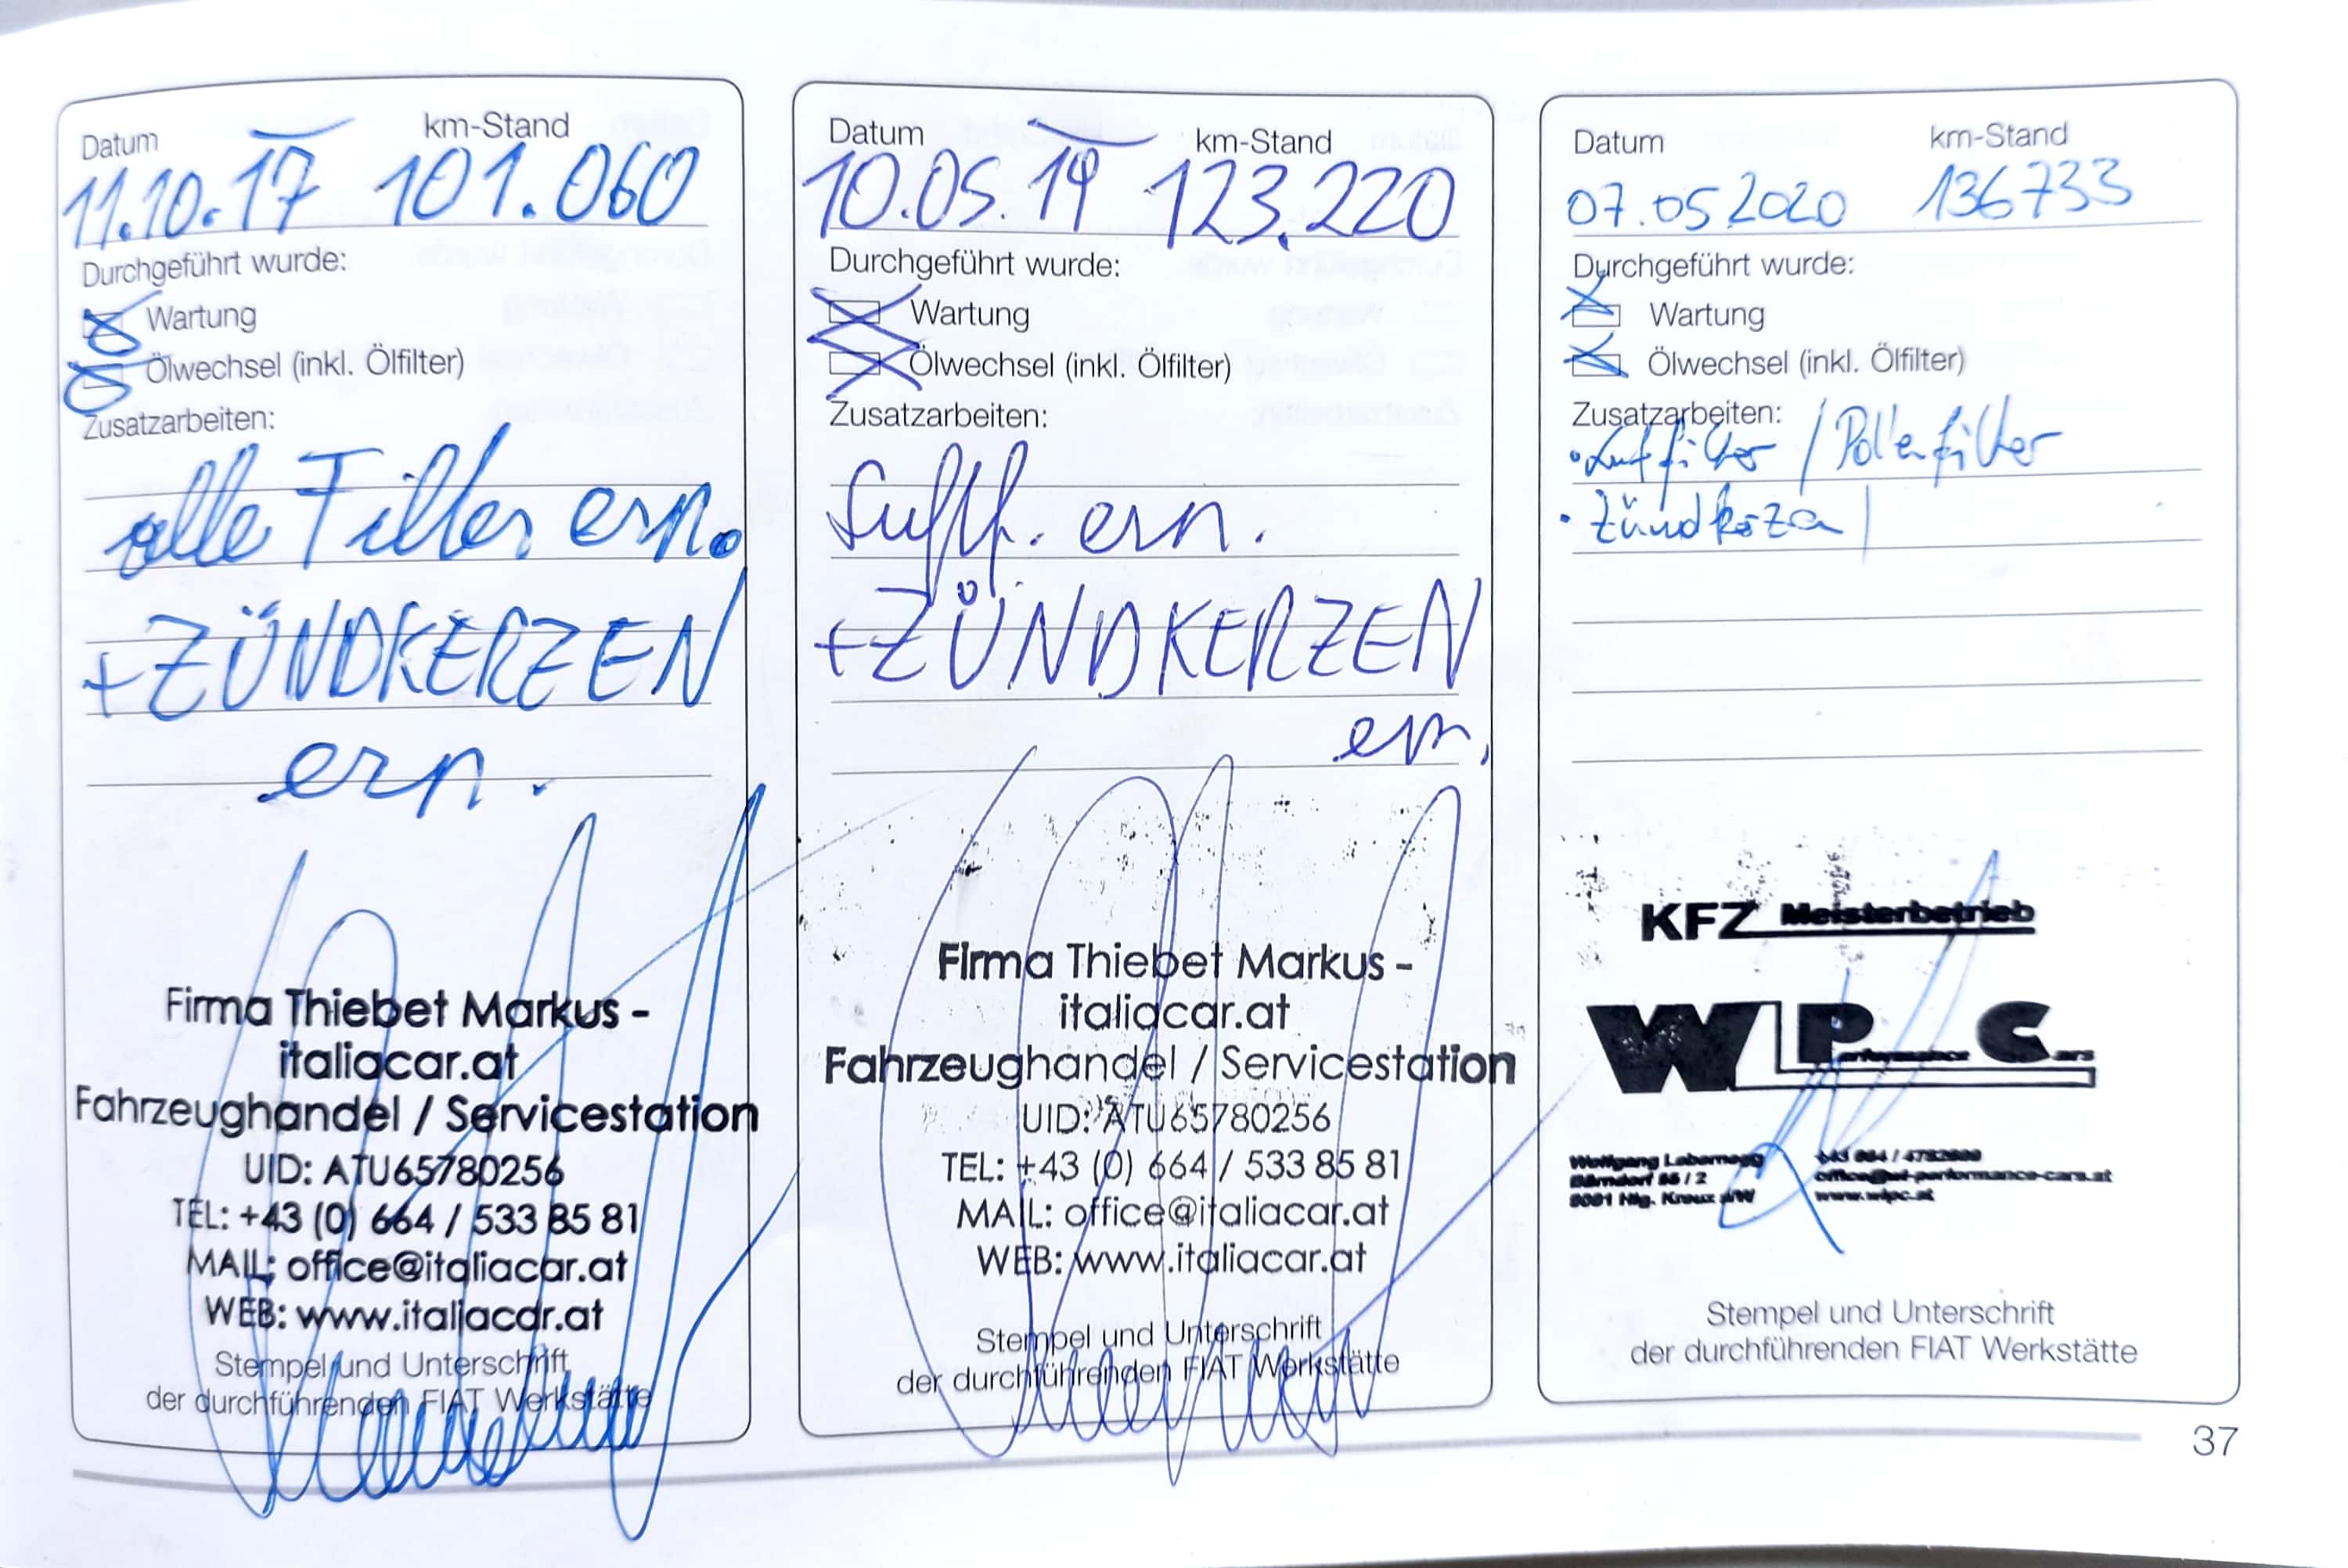 Datum km-Stand
11.10.17 101.060
Durchgeführt wurde:
Wartung
Ölwechsel (inkl. Ölfilter)
Zusatzarbeiten:
alle Filter ern.
+ZÜNDKERZEN
ern.
Firma Thiebet Markus -
italiacar.at
Fahrzeughandel / Servicestation
UID: ATU65780256
TEL: +43 (0) 664 / 533 85 81
MAIL: office@italiacar.at
WEB: www.italiacar.at
Stempel und Unterschrift
der durchführenden FIAT Werkstätte
Datum km-Stand
10.05.19 123.220
Durchgeführt wurde:
Wartung
Ölwechsel (inkl. Ölfilter)
Zusatzarbeiten:
Luftf. ern.
+ZÜNDKERZEN
ern.
Firma Thiebet Markus -
italiacar.at
Fahrzeughandel / Servicestation
UID: ATU65780256
TEL: +43 (0) 664 / 533 85 81
MAIL: office@italiacar.at
WEB: www.italiacar.at
Stempel und Unterschrift
der durchführenden FIAT Werkstätte
Datum km-Stand
07.05.2020 136733
Durchgeführt wurde:
Wartung
Ölwechsel (inkl. Ölfilter)
Zusatzarbeiten:
• Luftfilter / Pollenfilter
• Zündkerzen
KFZ Meisterbetrieb
WL Performance Cars
Wolfgang
office@wl-performance-cars.at
8081 Hlg. Kreuz a/W www.wlpc.at
Stempel und Unterschrift
der durchführenden FIAT Werkstätte
37